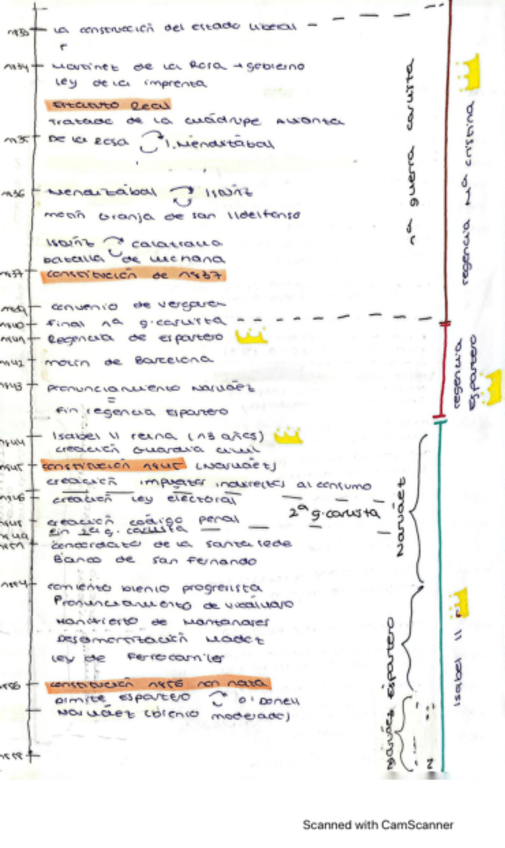 1833 la construcción del estado liberal
1834 Martínez de la Rosa → gobierno
ley de la imprenta
Estatuto Real
Tratado de la Cuádruple Alianza
1835 De la Rosa J. Mendizábal
1836 Mendizábal Istúriz
motín Granja de San Ildefonso
Istúriz Calatrava
batalla de Luchana
1837 constitución de 1837
1839 convenio de Vergara
1840 final 1ª g. carlista
1841 Regencia de Espartero
1842 motín de Barcelona
1843 pronunciamiento Narváez
=
fin regencia Espartero
1844 Isabel II reina (13 años)
creación Guardia Civil
1845 constitución 1845 (Narváez)
creación impuestos indirectos al consumo
1846 creación ley electoral
1848 creación código penal
1849 fin 2ª g. carlista
1851 concordato de la santa sede
Banco de San Fernando
1854 comienzo bienio progresista
Pronunciamiento de Vicálvaro
Manifiesto de Manzanares
Desamortización Madoz
ley de Ferrocarriles
1856 constitución 1856 non nata
dimite Espartero O'Donell
Narváez (bienio moderado)
1858
1ª guerra carlista
regencia Mª Cristina
regencia Espartero
2ª g. carlista
Narváez
Espartero
Narváez
N
Isabel II
Scanned with CamScanner